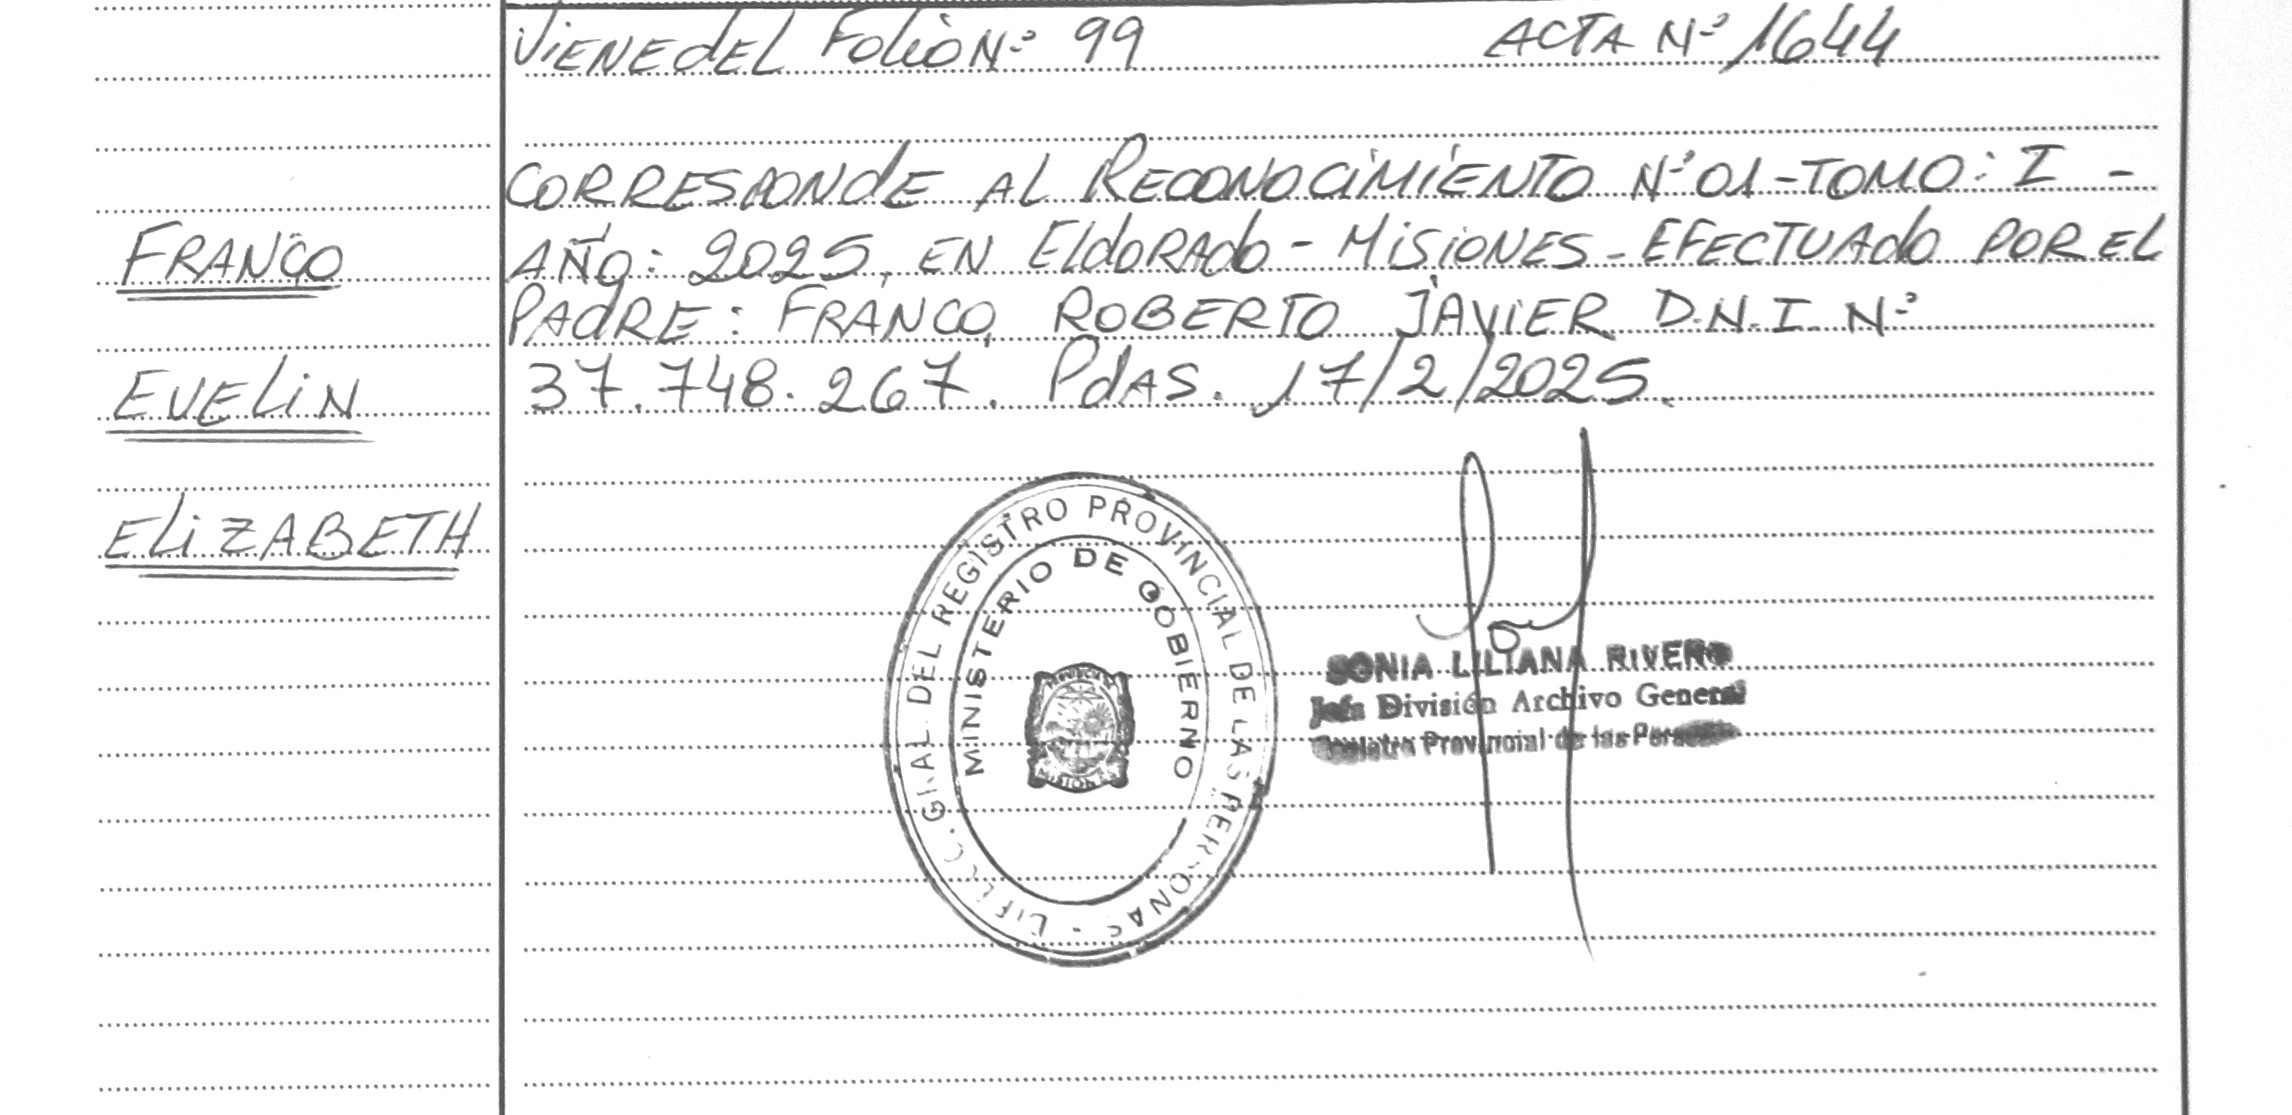 ViENE dEL FoLiO Nº 99 ACTA Nº 1644
CORRESPONdE AL RECONOCiMiENTO Nº 01-TOMO: I -
FRANCO
AÑO: 2025, EN ELdORAdo - MiSiONES - EFECTUAdo POR EL
PAdRE: FRANCO, ROBERTO JAViER D.N.I. Nº
EVELiN
37.748.267. PdAS. 17/2/2025.
ELiZABETH
REGISTRO PROVINCIAL DE LAS PERSONAS
MINISTERIO DE GOBIERNO
MISIONES
SONIA LILIANA RIVERO
Jefa División Archivo General
Registro Provincial de las Personas